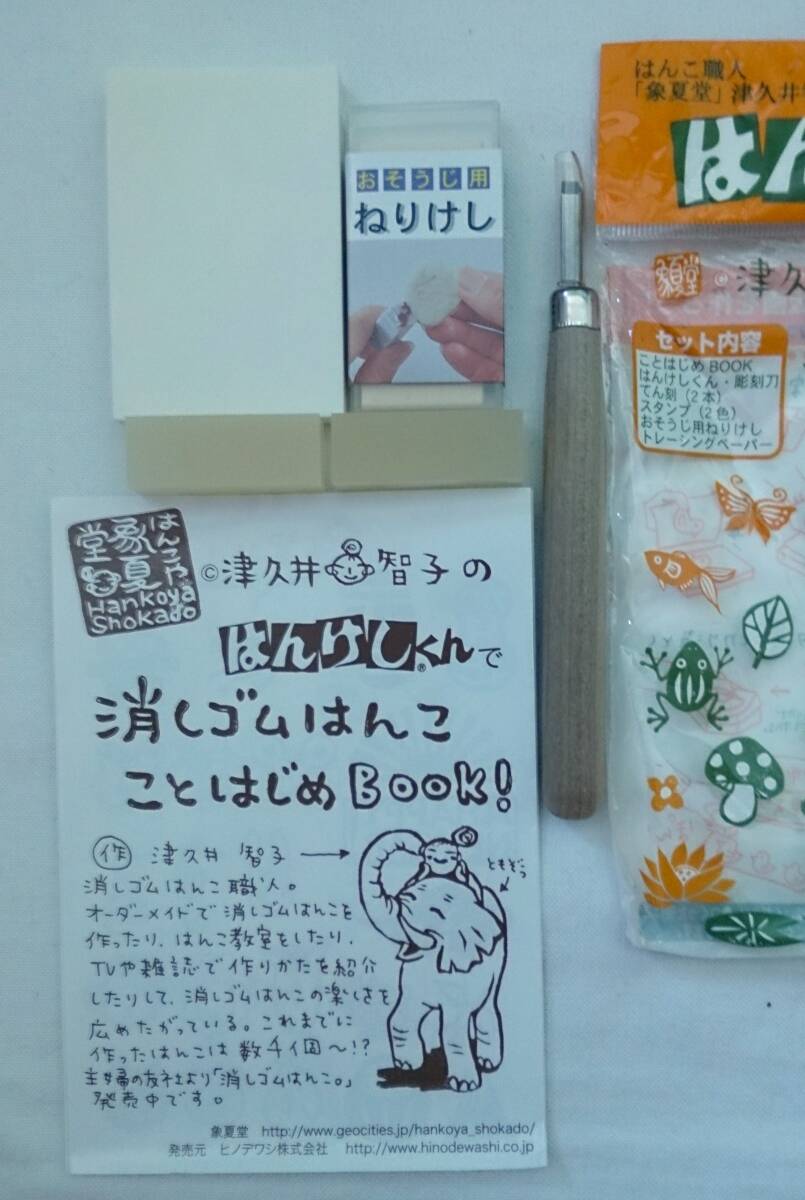 おそうじ用
ねりけし
はんこ職人
「象夏堂」津久井
はん
象夏堂
© 津久
セット内容
ことはじめBOOK
はんけしくん・彫刻刀
てん刻(2本)
スタンプ(2色)
おそうじ用ねりけし
トレーシングペーパー
はんこや
象夏堂
Hankoya
Shokado
©津久井智子の
はんけしくん®で
消しゴムはんこ
ことはじめBOOK!
作 津久井 智子→
ともぞう
消しゴムはんこ職人。
オーダーメイドで消しゴムはんこを
作ったり、はんこ教室をしたり、
TVや雑誌で作りかたを紹介
したりして、消しゴムはんこの楽しさを
広めたがっている。これまでに
作ったはんこは数千個〜!?
主婦の友社より「消しゴムはんこ。」
発売中です。
象夏堂 http://www.geocities.jp/hankoya_shokado/
発売元 ヒノデワシ株式会社 http://www.hinodewashi.co.jp